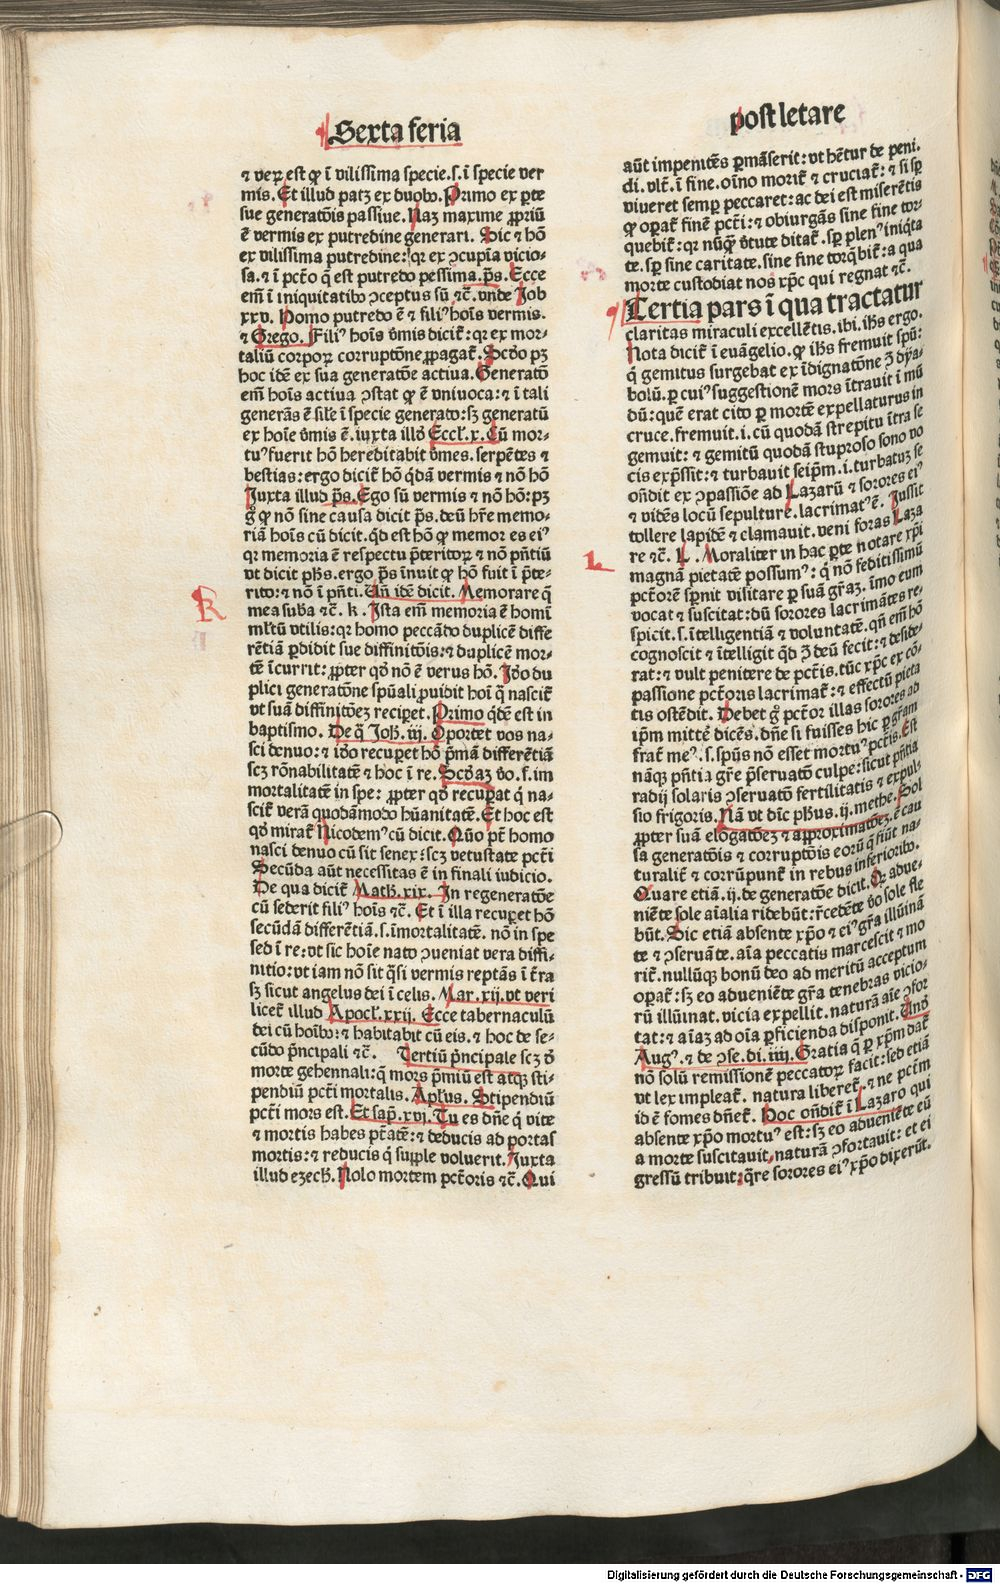 Sexta feria
post letare
⁊ veꝝ est ꝙ ī vilissima specie.s.ī specie ver
mis. Et illud patꝫ ex duobꝰ. Primo ex ꝑte
sue generatōis passiue. Naꝫ maxime ꝓpriū
ē vermis ex putredine generari. Sic ⁊ hō
ex vilissima putredine: qr ex ↄcupīa vicio-
sa.⁊ ī pctō q̄ est putredo pessima.ps̄. Ecce
em̄ ī iniquitatibꝰ ↄceptus sū ⁊c̄. vnde Job
xxv. Homo putredo ē ⁊ filiꝰ hoīs vermis.
⁊ Grego. Filiꝰ hoīs v̄mis dicit̄: qr ex mor-
taliū corpoꝝ corruptōne ꝓpagat̄. Scd̄o pꝫ
hoc idē ex sua generatōe actiua. Generatō
em̄ hoīs actiua ↄstat ꝙ ē vniuoca: ⁊ ī tali
generās ē sil̄e ī specie generato: sꝫ generatū
ex hoīe v̄mis ē. iuxta illd̄ Eccl̄.x. Cū mor-
tuꝰ fuerit hō hereditabit v̄mes. serpētes ⁊
bestias: ergo dicit̄ hō q̄dā vermis ⁊ nō hō
Juxta illud ps̄. Ego sū vermis ⁊ nō hō: pꝫ
g̊ ꝙ nō sine causa dicit ps̄. deū hr̄e memo-
riā hoīs cū dicit. qd̄ est hō ꝙ memor es eiꝰ
qr memoria ē respectu p̄teritoꝝ ⁊ nō pn̄tiū
vt dicit ph̄s. ergo ps̄ īnuit ꝙ hō fuit ī p̄te-
rito: ⁊ nō ī pn̄ti. Un̄ idē dicit. Memorare q̄
mea suba ⁊c̄. k. Ista em̄ memoria ē homī
ml̄tū vtilis: qr homo peccādo duplicē diffe
rētiā ꝑdidit sue diffinitōis: ⁊ duplicē mor-
tē īcurrit: ꝓpter qd̄ nō ē verus hō. Id̄o du
plici generatōne spūali ꝓuidit hoī q̄ nascit̄
vt suā diffinitōeꝫ reciꝑet. Primo qd̄ē est in
baptismo. De q̄ Joh̄. iij. Oportet vos na-
sci denuo: ⁊ id̄o recuꝑet hō p̄mā differētiā
scꝫ rōnabilitatē ⁊ hoc ī re. Scd̄aꝫ v̄o.s.im
mortalitatē in spe: ꝓpter qd̄ recuꝑat q̄ na-
scit̄ verā quodāmodo hūanitatē. Et hoc est
qd̄ mirat̄ Nicodemꝰ cū dicit. Quō pt̄ homo
nasci denuo cū sit senex: scꝫ vetustate pctī
Secūda aūt necessitas ē in finali iudicio.
De qua dicit̄ Math̄. xix. In regeneratōe
cū sederit filiꝰ hoīs ⁊c̄. Et ī illa recuꝑet hō
secūdā differētiā.s.īmortalitatē. nō in spe
sed ī re: vt sic hoīe nato ↄueniat vera diffi-
nitio: vt iam nō sit q̄si vermis reptās ī tr̄ra
sꝫ sicut angelus dei ī celis. Mar.xij.vt veri
licet illud Apocl̄.xxij. Ecce tabernaculū
dei cū hoībꝰ: ⁊ habitabit cū eis. ⁊ hoc de se-
cūdo p̄ncipali ⁊c̄. Tertiū p̄ncipale scꝫ d̄o
morte gehennali: q̄ mors p̄miū est atqꝫ sti-
pendiū pctī mortalis. Apl̄us. Stipendiū
pctī mors est. Et sap̄. xvj. Tu es dn̄e q̄ vite
⁊ mortis habes ptātē: ⁊ deducis ad portas
mortis: ⁊ reducis q̄ supple voluerit. Juxta
illud ezech̄. Nolo mortem pctōris ⁊c̄. Qui
aūt impenitēs ꝑmāserit: vt hētur de peni.
di. vlt̄. ī fine. oīno morit̄ ⁊ cruciat̄: ⁊ si sꝑ
viueret semꝑ peccaret: ac dei est miserētis
ꝙ oꝑat̄ finē pctī: ⁊ obiurgās sine fine tor-
quebit̄: qr nūq̄ v̄tute ditat̄. sꝑ plenꝰ iniqta
te. sꝑ sine caritate. sine fine torq̄bit̄: a qua
morte custodiat nos xp̄c qui regnat ⁊c̄.
Tertia pars ī qua tractatur
claritas miraculi excellētis. ibi. ih̄s ergo.
Nota dicit̄ ī euāgelio. ꝙ ih̄s fremuit spū:
q̄ gemitus surgebat ex īdignatōne ꝫ dya-
bolū. ꝑ cuiꝰ suggestionē mors ītrauit ī mū
dū: quē erat cito ꝑ mortē expellaturus in
cruce. fremuit.i.cū quodā strepitu ītra se
gemuit: ⁊ gemitū quodā stuproso sono vo
cis exp̄ssit: ⁊ turbauit seip̄m.i.turbatuꝫ se
on̄dit ex ↄpassiōe ad Lazarū ⁊ sorores eiꝰ
⁊ vidēs locū sepulture. lacrimatꝰ ē. Jussit
tollere lapidē ⁊ clamauit. veni foras Laza
re ⁊c̄. L. Moraliter in hac ꝑte notare xp̄i
magnā pietatē possumꝰ: q̄ nō feditissimū
pctōrē sꝑnit visitare ꝑ suā gr̄aꝫ. īmo eum
vocat ⁊ suscitat: dū sorores lacrimātes re-
spicit.s.ītelligentiā ⁊ voluntatē. qn̄ em̄ hō
cognoscit ⁊ ītelligit qd̄ ꝫ deū fecit: ⁊ deside-
rat: ⁊ vult penitere de pctīs. tūc xp̄c ex cō-
passione pctōris lacrimat̄: ⁊ effectū pieta
tis ostēdit. Debet g̊ pctōr illas sorores ad
ip̄m mittē dicēs. dn̄e si fuisses hic ꝑ gr̄am
frat̄ meꝰ.s.spūs nō esset mortuꝰ pctīs. Est
nāqꝫ pn̄tia gr̄e p̄seruatō culpe: sicut pn̄tia
radij solaris ↄseruatō fertilitatis ⁊ expul-
sio frigoris. Nā vt dic̄ ph̄us.ij.methe. Sol
ꝓpter suā elōgatōeꝫ ⁊ aꝓximatōeꝫ ē cau
sa generatōis ⁊ corruptōis eorū q̄ fiūt na-
turalit̄ ⁊ corrūpunt̄ in rebus inferioribꝰ.
Quare etiā.ij.de generatōe dicit. Qr adue-
niēte sole aīalia ridebūt: r̄cedēte v̄o sole fle
būt. Sic etiā absente xp̄o ⁊ eiꝰ gr̄a illūinā
te ⁊ ↄseruāte. aīa peccatis marcescit ⁊ mo
rit̄. nullūqꝫ bonū deo ad meritū acceptum
oꝑat̄: sꝫ eo adueniēte gr̄a tenebras vicio-
rū illūinat. vicia expellit. naturā aīe ↄfor
tat: ⁊ aīaꝫ ad oīa ꝑficienda disponit. Und̄
Augꝰ. ⁊ de ↄse. di. iiij. Gratia q̄ ꝑ xp̄m dat̄
nō solū remissionē peccatoꝝ facit: sed etiā
vt lex impleat̄. natura liberet̄. ⁊ ne pctm̄
id ē fomes dn̄et̄. Hoc on̄dit̄ ī Lazaro qui
absente xp̄o mortuꝰ est: sꝫ eo adueniēte eū
a morte suscitauit, naturā ↄfortauit: et ei
gressū tribuit: q̄re sorores eiꝰ xp̄o dixerūt.
R
L
Digitalisierung gefördert durch die Deutsche Forschungsgemeinschaft - DFG